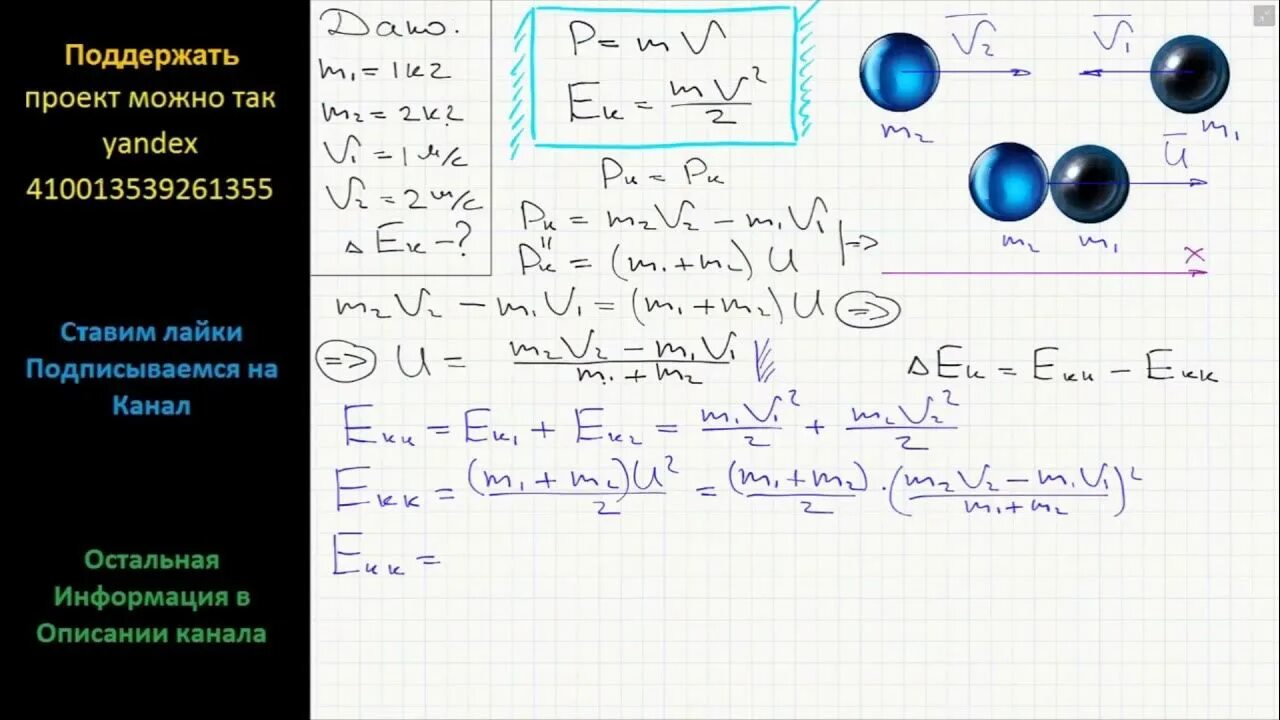 Поддержать
проект можно так
yandex
410013539261355
Ставим лайки
Подписываемся на
Канал
Остальная
Информация в
Описании канала
Дано.
m₁ = 1 кг
m₂ = 2 кг
V₁ = 1 м/с
V₂ = 2 м/с
ΔEк - ?
P = mV
Eк = mV²/2
Pн = Pк
Pн = m₂V₂ - m₁V₁
Pк = (m₁+m₂)U
=>
m₂V₂ - m₁V₁ = (m₁+m₂)U =>
=> U = (m₂V₂ - m₁V₁)/(m₁+m₂)
ΔEк = Eкн - Eкк
Eкн = Eк₁ + Eк₂ = m₁V₁²/2 + m₂V₂²/2
Eкк = (m₁+m₂)U²/2 = (m₁+m₂)/2 · ((m₂V₂ - m₁V₁)/(m₁+m₂))²
Eкк =
V₂ V₁
m₂ m₁
U
m₂ m₁
x